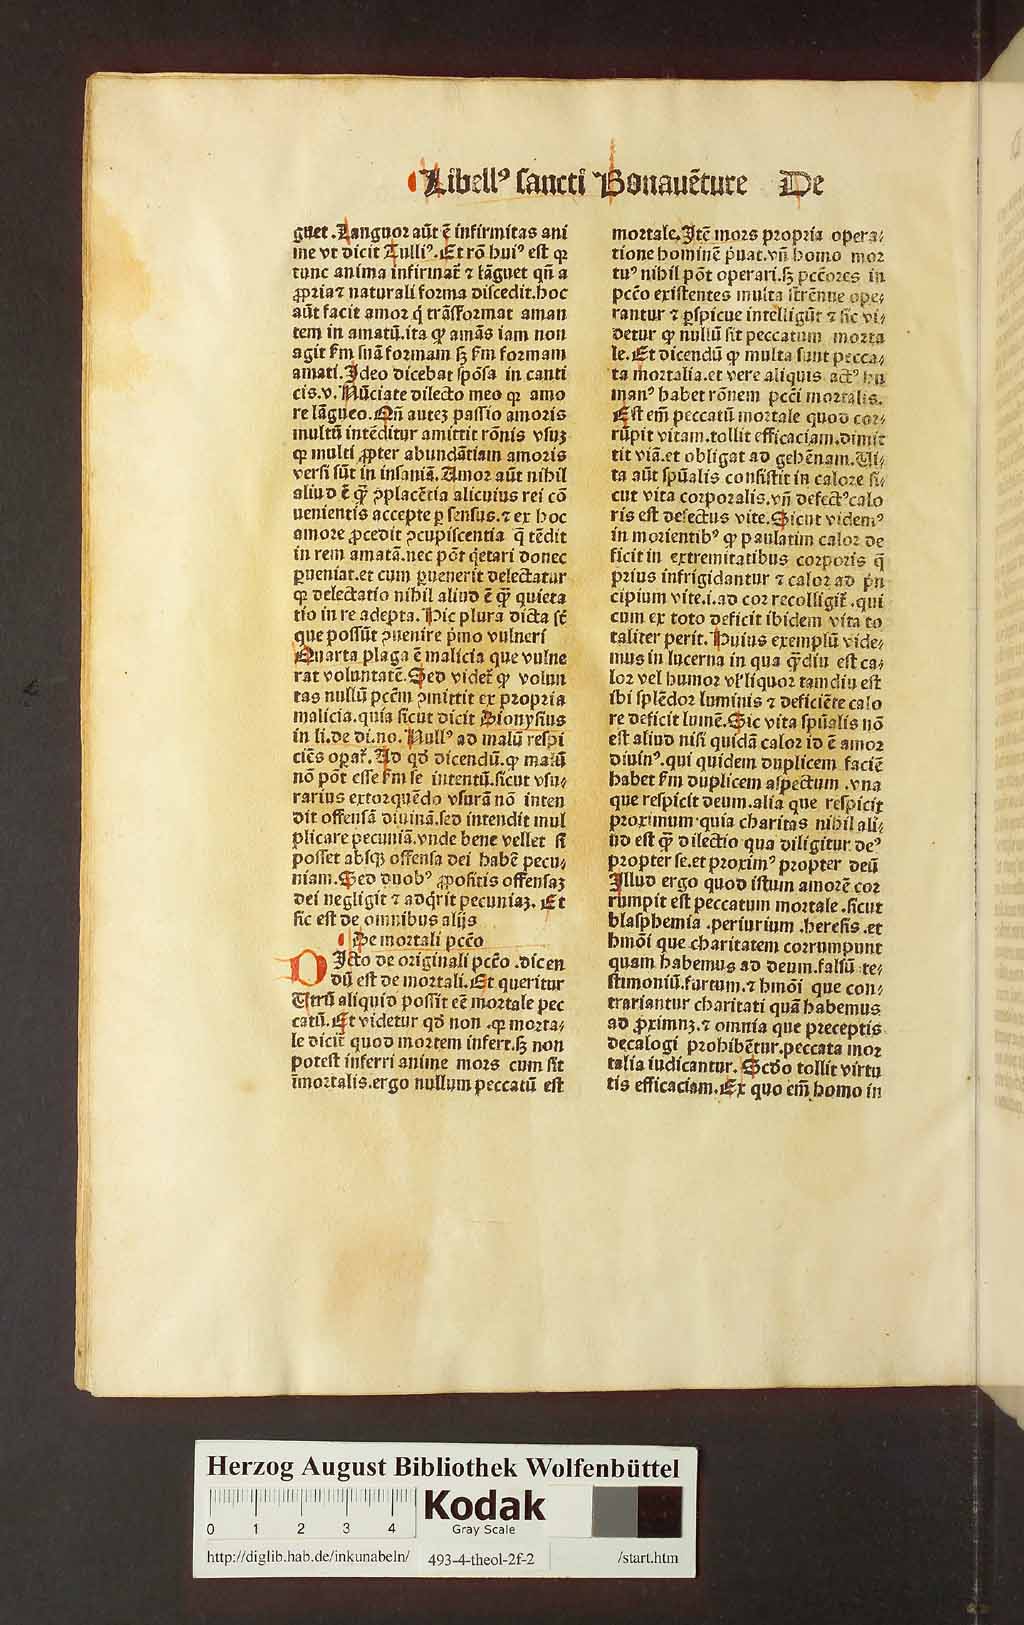 Libellꝰ sancti Bonauēture De
guet.Languor aūt ē infirmitas ani
me vt dicit Tulliꝰ.Et rō huiꝰ est qꝛ
tunc anima infirmat̄ ⁊ lāguet qn̄ a
ꝓpria⁊ naturali forma discedit.hoc
aūt facit amor q̄ trāsformat aman
tem in amatū.ita ꝙ amās iam non
agit ẜm suā formam sꝫ ẜm formam
amati.Ideo dicebat spōsa in canti
cis.v.Nūciate dilecto meo qꝛ amo
re lāgueo.Qn̄ autez passio amoris
multū intēditur amittit rōnis vsuꝫ
ꝙ multi ꝓpter abundātiam amoris
versi sūt in insaniā.Amor aūt nihil
aliud ē q̄ꝫ ꝯplacētia alicuius rei cō
uenientis accepte ꝑ sensus.⁊ ex hoc
amore ꝓcedit ꝯcupiscentia q̄ tēdit
in rem amatā.nec pōt q̇etari donec
ꝑueniat.et cum ꝑuenerit delectatur
qꝛ delectatio nihil aliud ē q̄ꝫ quieta
tio in re adepta.Hic plura dicta sr̄
que possūt ꝯuenire pͥmo vulneri
Quarta plaga ē malicia que vulne
rat voluntatē.Sed videt̄ ꝙ volun
tas nullū pctm̄ ꝯmittit ex propria
malicia.quia sicut dicit Dionysius
in li.de di.no.Nullꝰ ad malū respi
ciēs oꝑat̄.Ad qd̄ dicendū.ꝙ malū
nō pōt esse ẜm se intentū.sicut vsu⸗
rarius extorquēdo vsurā nō inten
dit offensā diuinā.sed intendit mul
plicare pecuniā.vnde bene vellet si
posset absqꝫ offensa dei habē pecu⸗
niam.Sed duobꝰ ꝓpositis offensaꝫ
dei negligit ⁊ adq̇rit pecuniaꝫ. Et
sic est de omnibus alijs
De mortali pctō
DIcto de originali pctō .dicen
dū est de mortali.Et queritur
Vtrū aliquid possit eē mortale pec
catū.Et videtur qd̄ non .qꝛ morta⸗
le dicit̄ quod mortem infert.sꝫ non
potest inferri anime mors cum sit
īmortalis.ergo nullum peccatū est
mortale.Itē mors propria opera⸗
tione hominē pͥuat.vn̄ homo mor
tuꝰ nihil pōt operari.sꝫ pctōres in
pctō existentes multa strēnue ope⸗
rantur ⁊ ꝑspicue intelligūt ⁊ sic vi⸗
detur ꝙ nullū sit peccatum morta
le.Et dicendū ꝙ multa sunt pecca⸗
ta mortalia.et vere aliquis actꝰ hu
manꝰ habet rōnem pcti mortalis.
Est em̄ peccatū mortale quod cor⸗
rūpit vitam.tollit efficaciam.dimit
tit viā.et obligat ad gehēnam.Vi⸗
ta aūt spūalis consistit in calore si⸗
cut vita corporalis.vn̄ defectꝰ calo
ris est defectus vite.Sicut videmꝰ
in morientibꝰ ꝙ paulatim calor de
ficit in extremitatibus corporis q̄
prius infrigidantur ⁊ calor ad pͥn
cipium vite.i.ad cor recolligit̄ .qui
cum ex toto deficit ibidem vita to
taliter perit.Huius exemplū vide⸗
mus in lucerna in qua q̄ꝫdiu est ca⸗
lor vel humor vl̓ liquor tam diu est
ibi splēdor luminis ⁊ deficiēte calo
re deficit lumē.Sic vita spūalis nō
est aliud nisi quidā calor id ē amor
diuinꝰ.qui quidem duplicem faciē
habet ẜm duplicem aspectum .vna
que respicit deum.alia que respicit
proximum quia charitas nihil ali⸗
ud est q̄ꝫ dilectio qua diligitur deꝰ
propter se.et proximꝰ propter deū
Illud ergo quod istum amorē cor
rumpit est peccatum mortale .sicut
blasphemia .periurium .heresis .et
hmōi que charitatem corrumpunt
quam habemus ad deum.falsū te⸗
stimoniū.furtum.⁊ hmōi que con⸗
trariantur charitati quā habemus
ad ꝓximuꝫ.⁊ omnia que preceptis
decalogi prohibētur.peccata mor
talia iudicantur. Scd̄o tollit virtu
tis efficaciam.Ex quo em̄ homo in
Herzog August Bibliothek Wolfenbüttel
0 1 2 3 4
Kodak
Gray Scale
http://diglib.hab.de/inkunabeln/ 493-4-theol-2f-2 /start.htm